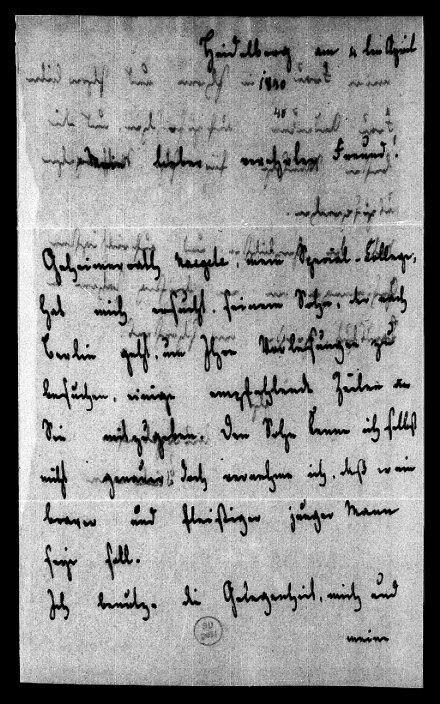 Heidelberg am 4ten April
1830
Mein lieber verehrter Freund!
Geheimerrath Naegele, mein Special-College,
hat mich ersucht, seinem Sohne, der nach
Berlin geht, um Ihre Vorlesungen zu
besuchen, einige empfehlende Zeilen an
Sie mitzugeben. Den Sohn kenne ich selbst
nicht genauer, doch vernehme ich, daß er ein
braver und fleißiger junger Mann
seyn soll.
Ich benutze die Gelegenheit, mich und
meine